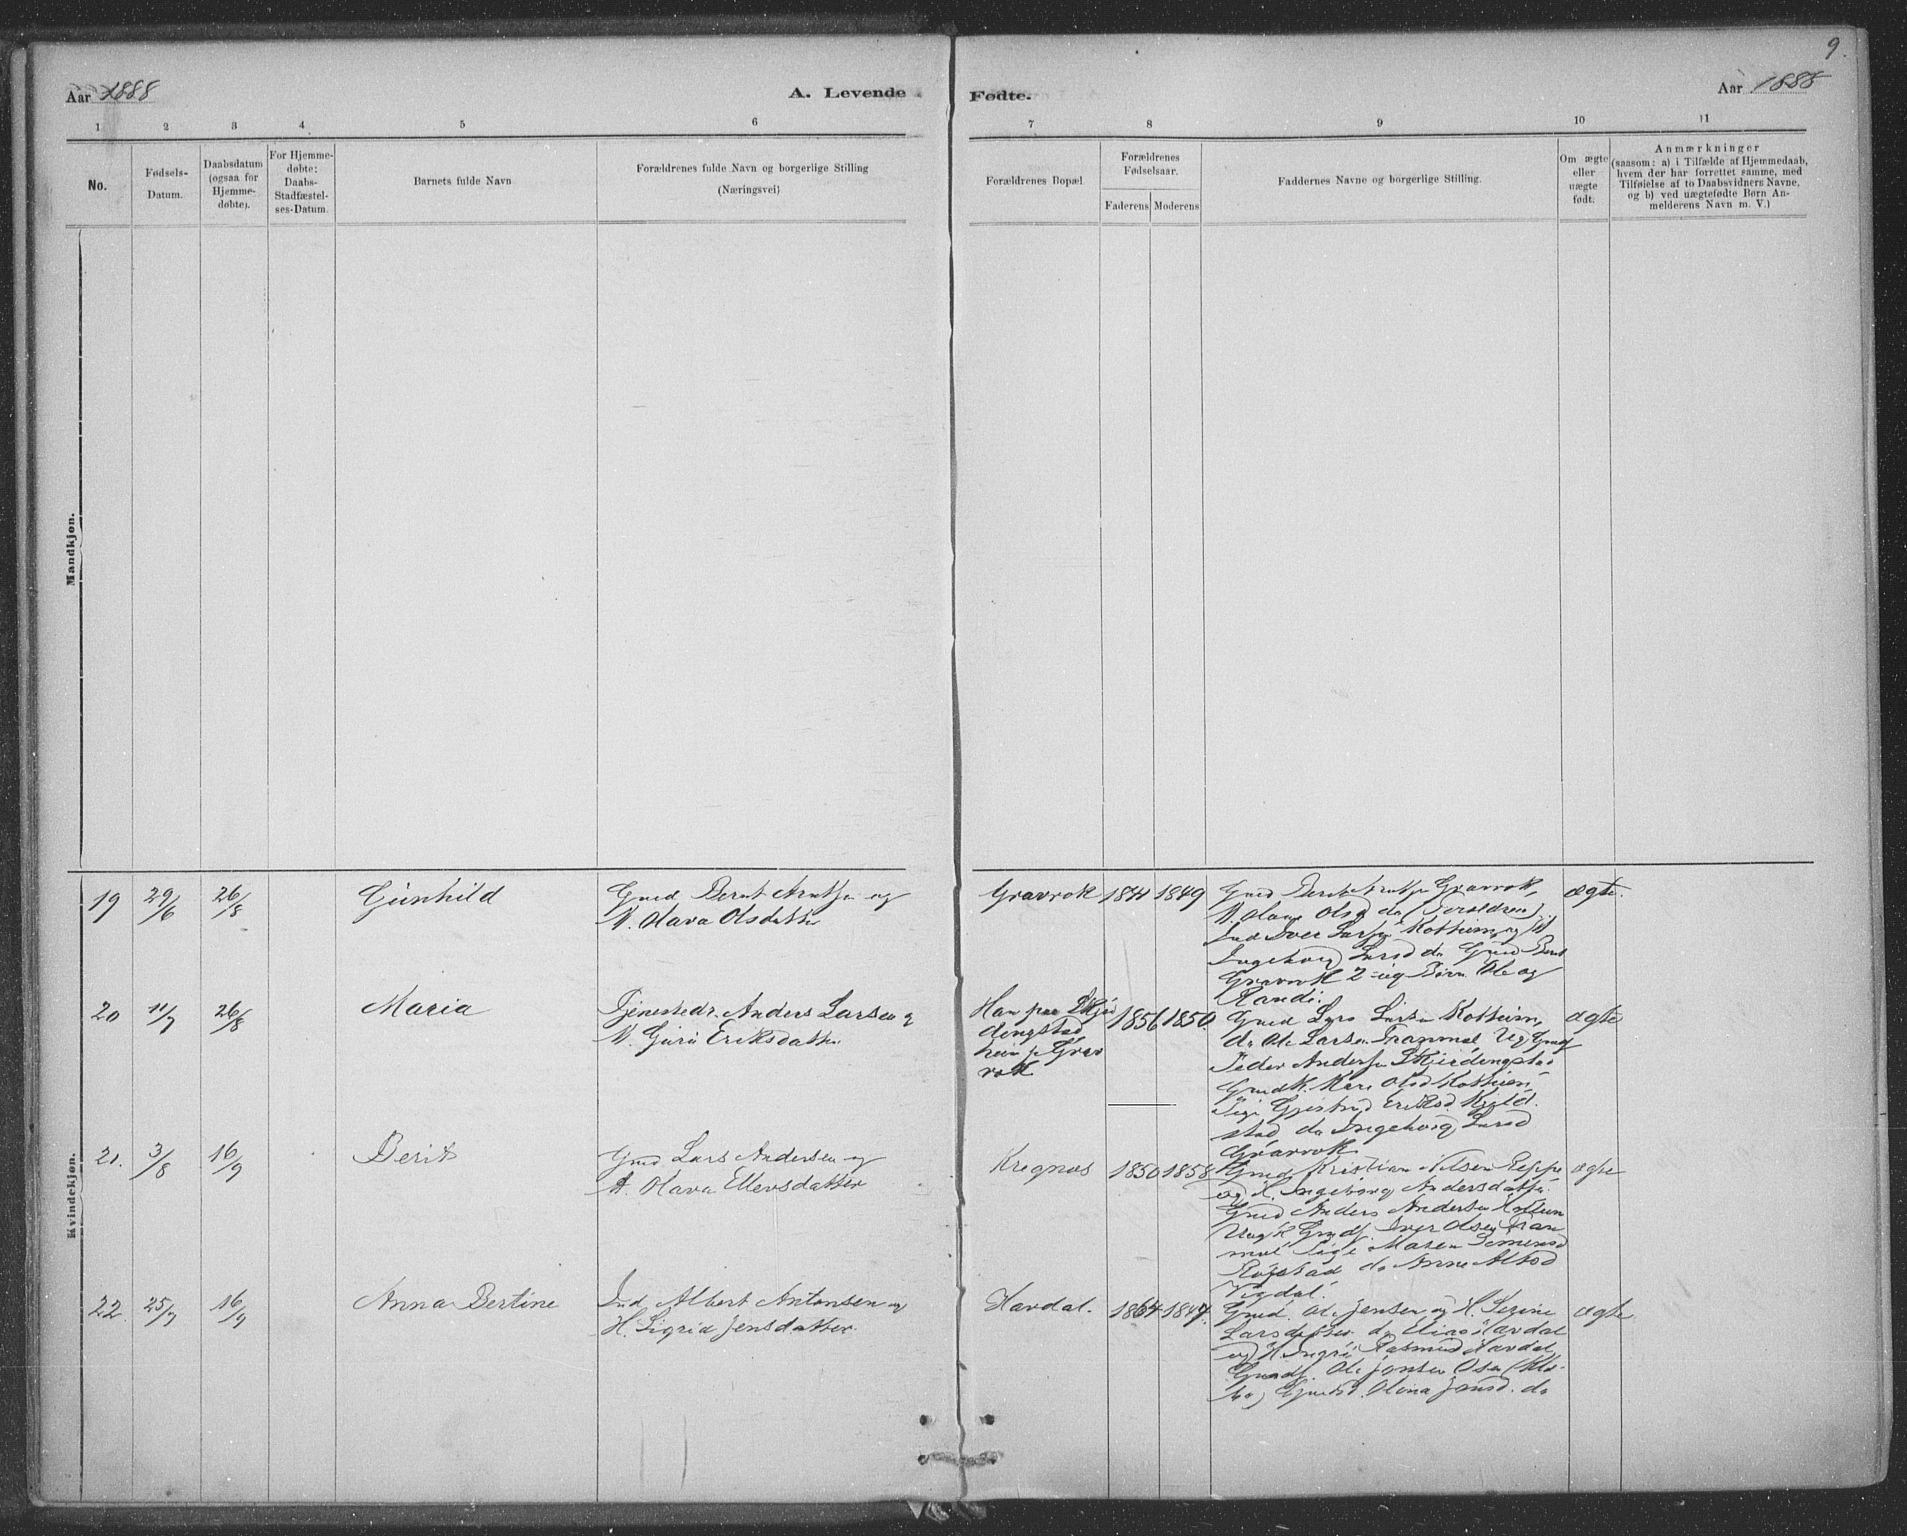 9.
Aar 1888
A. Levende
Fødte.
Aar 1888
1 2 3 4 5 6
7 8 9 10 11
No.
Fødsels-
Datum.
Daabsdatum
(ogsaa for
Hjemme-
døbte).
For Hjemme-
døbte:
Daabs-
Stadfæstel-
ses-Datum.
Barnets fulde Navn
Forældrenes fulde Navn og borgerlige Stilling
(Næringsvei)
Forældrenes Bopæl.
Forældrenes
Fødselsaar.
Faderens
Moderens
Faddernes Navne og borgerlige Stilling.
Om ægte
eller
uægte
født.
Anmærkninger
(saasom: a) i Tilfælde af Hjemmedaab,
hvem der har forrettet samme, med
Tilføielse af to Daabsvidners Navne,
og b) ved uægtefødte Børn An-
melderens Navn m. V.)
Mandkjøn.
Kvindekjøn.
19 29/6 26/8 Gunhild
Gmd Bernt Arntsen og
Olava Olsdatter
Gravrok 1844 1849
Gmd Bernt Arntsn Gravrok,
Olava Olsd do (Foreldrene).
Ind Iver Larsn Kotheim, og
Ingeborg Larsd do Gmd Bernt
Gravrok 2 ug Børn Ole og
Randi.
ægte.
20 11/7 26/8 Maria
Tjenestedr. Anders Larsen og
Guru Eriksdatter
Han paa Skjer
dingstad
hun p Grav
rok
1856 1850
Gmd Lars Larsn Kotheim,
do Ole Larsen Tranmel
Peder Andersn Skjerdingstad
Kari Olsd Kotheim
Pige Gjertrud Eriksd. Kjeld
stad do Ingeborg Larsd
Gravrok
ægte
21. 3/8 16/9 Berit
Gmd Lars Andersen og
Olava Ellevsdatter
Kregnæs 1850 1858
Gmd Kristian Nilsen Leppe
og H. Ingeborg Andersdatter
Gmd Anders Andersen
Iver Olsen Tran
mel Pige Maren
do Anne
Vigdal.
ægte
22. 25/7 16/9 Anna Bertine
Ind Albert Antonsen og
H. Sigrid Jensdatter
Havdal. 1864 1847.
Gmd. Ole Jensen og H. Serine
Larsdatter do Elias Havdal
og H Ingri Rasmusd Havdal
Ole Jonsen Osen
Olina Jensd. do
ægte